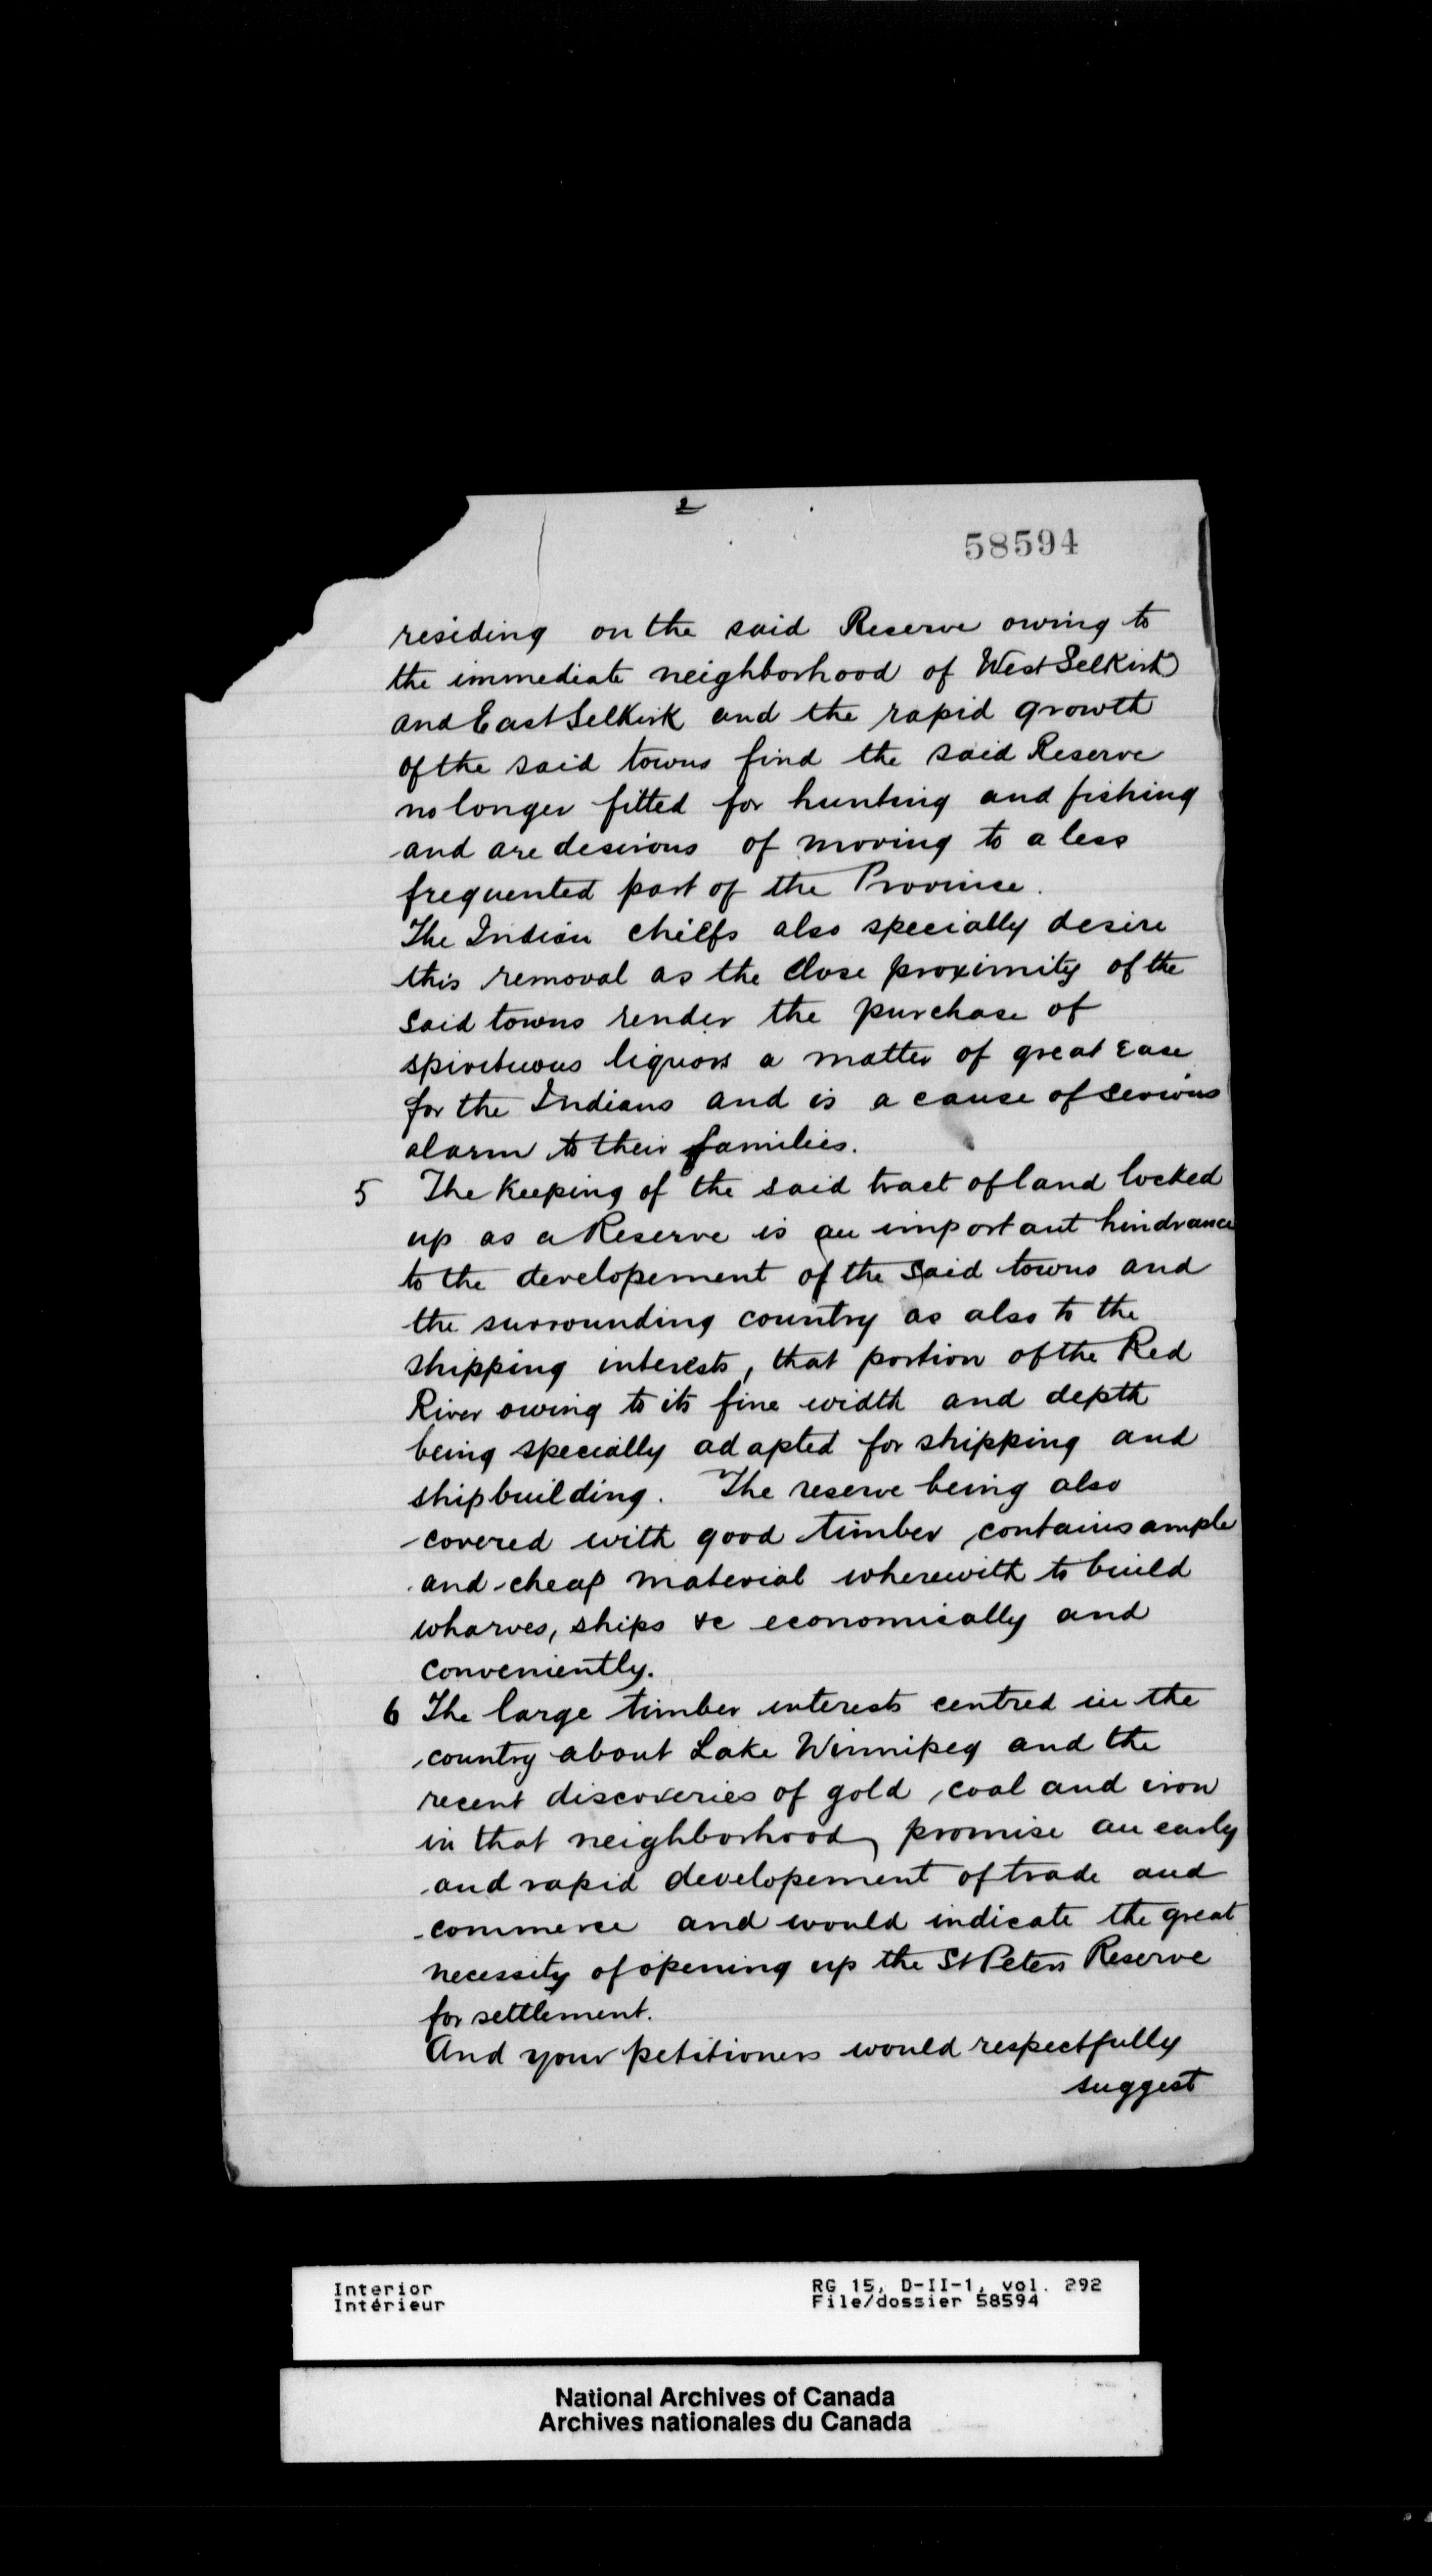 2
58594
residing on the said Reserve owing to
the immediate neighborhood of West Selkirk
and East Selkirk and the rapid growth
of the said towns find the said Reserve
no longer fitted for hunting and fishing
and are desirous of moving to a less
frequented part of the Province.
The Indian chiefs also specially desire
this removal as the close proximity of the
said towns render the purchase of
spirituous liquors a matter of great ease
for the Indians and is a cause of serious
alarm to their families.
5 The keeping of the said tract of land locked
up as a Reserve is an important hindrance
to the developement of the said towns and
the surrounding country as also to the
shipping interests, that portion of the Red
River owing to its fine width and depth
being specially adapted for shipping and
shipbuilding. The reserve being also
covered with good timber contains ample
and cheap material wherewith to build
wharves, ships &c economically and
conveniently.
6 The large timber interests centred in the
country about Lake Winnipeg and the
recent discoveries of gold, coal and iron
in that neighborhood, promise an early
and rapid developement of trade and
commerce and would indicate the great
necessity of opening up the St Peters Reserve
for settlement.
And your petitioners would respectfully
suggest
Interior RG 15, D-II-1, vol. 292
Intérieur File/dossier 58594
National Archives of Canada
Archives nationales du Canada